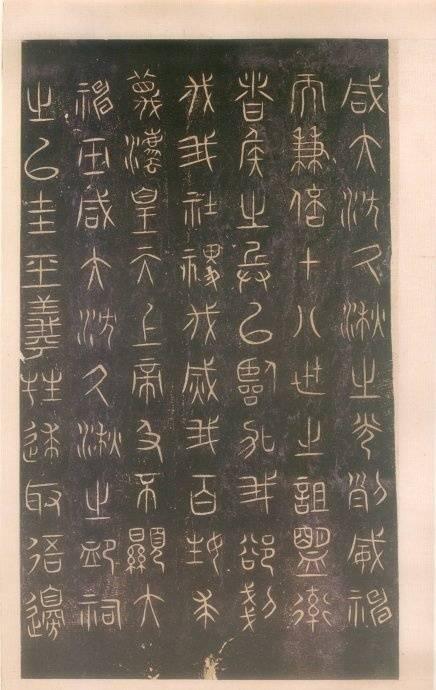 咸大沈久湫之光列威神
而兼倍十八世之詛盟衛
者侯之兵以臨加我欲剗
伐我社稷伐烕我百姓求
蔑灋皇天上帝及不顯大
神巫咸大沈久湫之卹祠
之以圭玉羲牲逑取𢓜邊